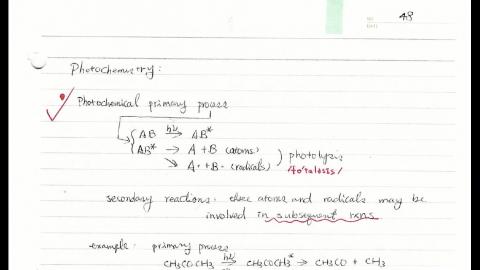 48
Photochemistry:
Photochemical primary process
AB hν→ AB*
AB* → A + B (atoms)
↘ A· + B· (radicals)
photolysis
/fo'taləsis/
secondary reactions: these atoms and radicals may be
involved in subsequent rxns.
example: primary process
CH3COCH3 hν→ CH3COCH3* → CH3CO + CH3